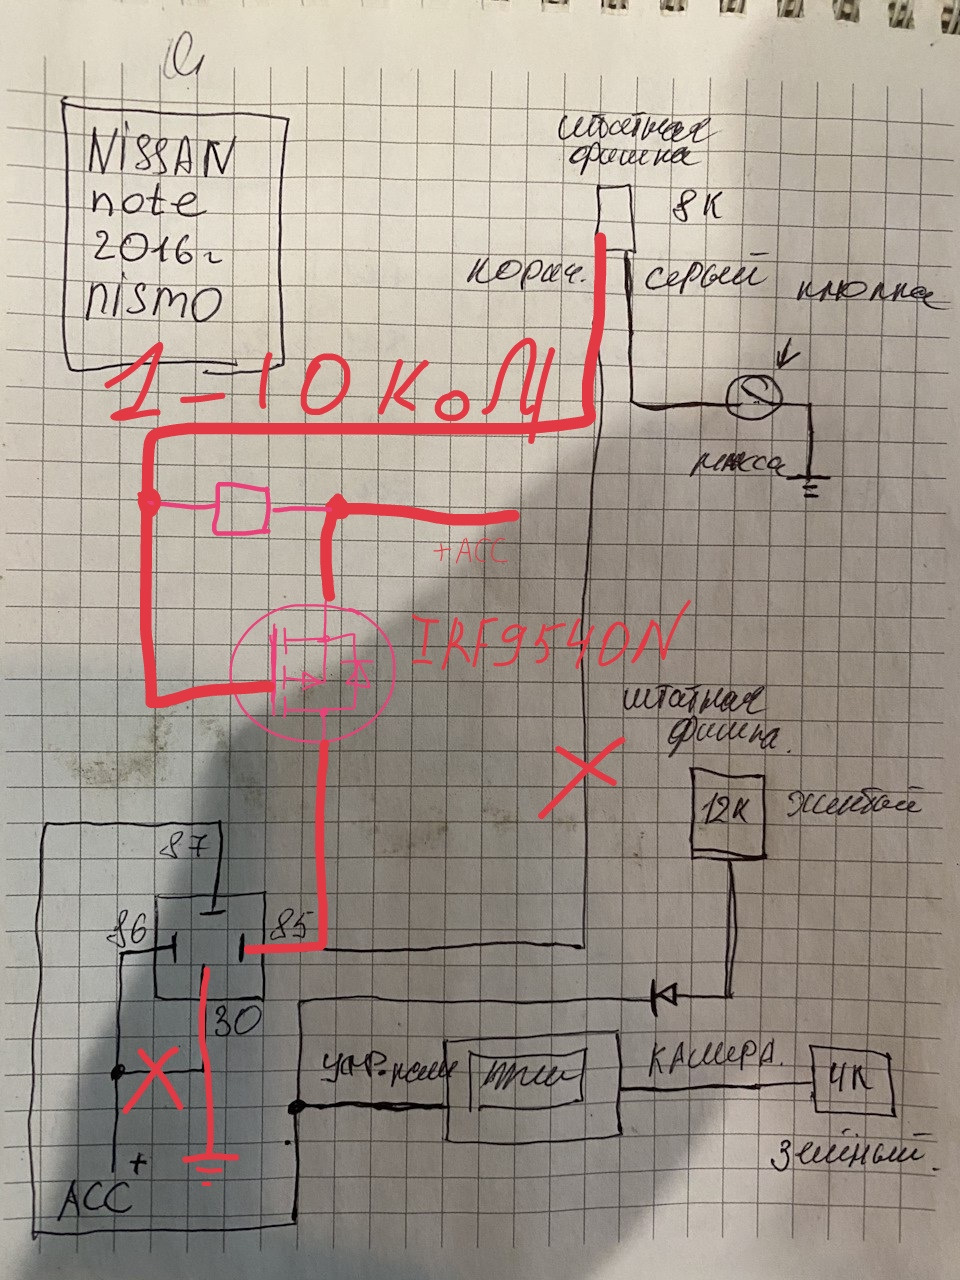 NISSAN
note
2016г
nismo
штатная
фишка
8К
корич.
серый
кнопка
1-10 кОм
масса
+ACC
IRF9540N
штатная
фишка.
12К
желтый
87
86
85
30
КАМЕРА.
4К
зелёный.
+
ACC